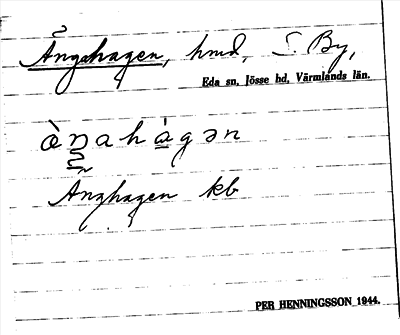 Ängahagen, hmd, S. By,
Eda sn, Jösse hd, Värmlands län.
Änghagen kb
PER HENNINGSSON 1944.